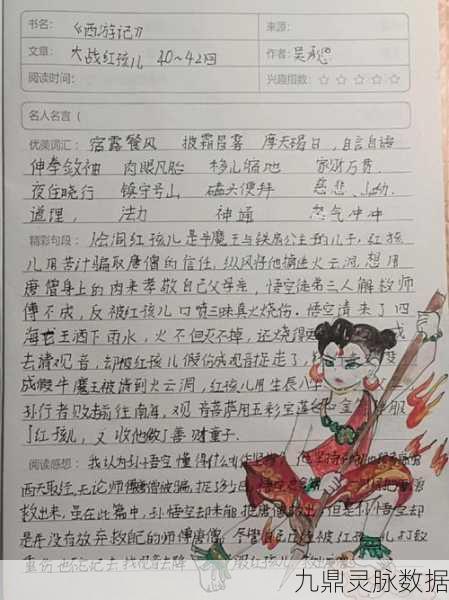 书名：《西游记》 来源：
文章：大战红孩儿 40～42回 作者：吴承恩
阅读时间： 兴趣指数：☆☆☆☆☆
名人名言（
优美词汇：宿露餐风 披霜冒雾 摩天碍日，自言自语
伸拳敛袖 肉眼凡胎 移山缩地 家财万贯
夜住晓行 镇守号山 磕头便拜 慈悲、
道理， 法力 神通 怒气冲冲
精彩句段：洞红孩儿是牛魔王与铁扇公主的儿子，红孩
儿用苦计骗取唐僧的信任，纵风将他摄进火云洞，想用
唐僧身上的肉来孝敬自己父母亲，悟空徒弟三人解救师
傅不成，反被红孩儿口喷三昧真火烧伤。悟空请来了四
海龙王洒下雨水，火不但灭不掉，还烧得 成
去请观音，却被红孩儿假份成观音捉走了，
成假牛魔王被请到火云洞，红孩儿用生辰八
孙行者败走前往南海，观音菩萨用五彩宝莲 服
了红孩儿，又收他做了善财童子。
阅读感想：我认为孙悟空懂得什么叫作坚持，
西天取经，无论师傅唐僧被骗，捉了多少
救出来，虽在此篇中，孙悟空却未能把唐僧救出 但是孙悟空却
是并没有放弃救自己的师傅唐僧，尽管 被红孩儿打致
重伤也 去找观音去降
九鼎灵脉数据